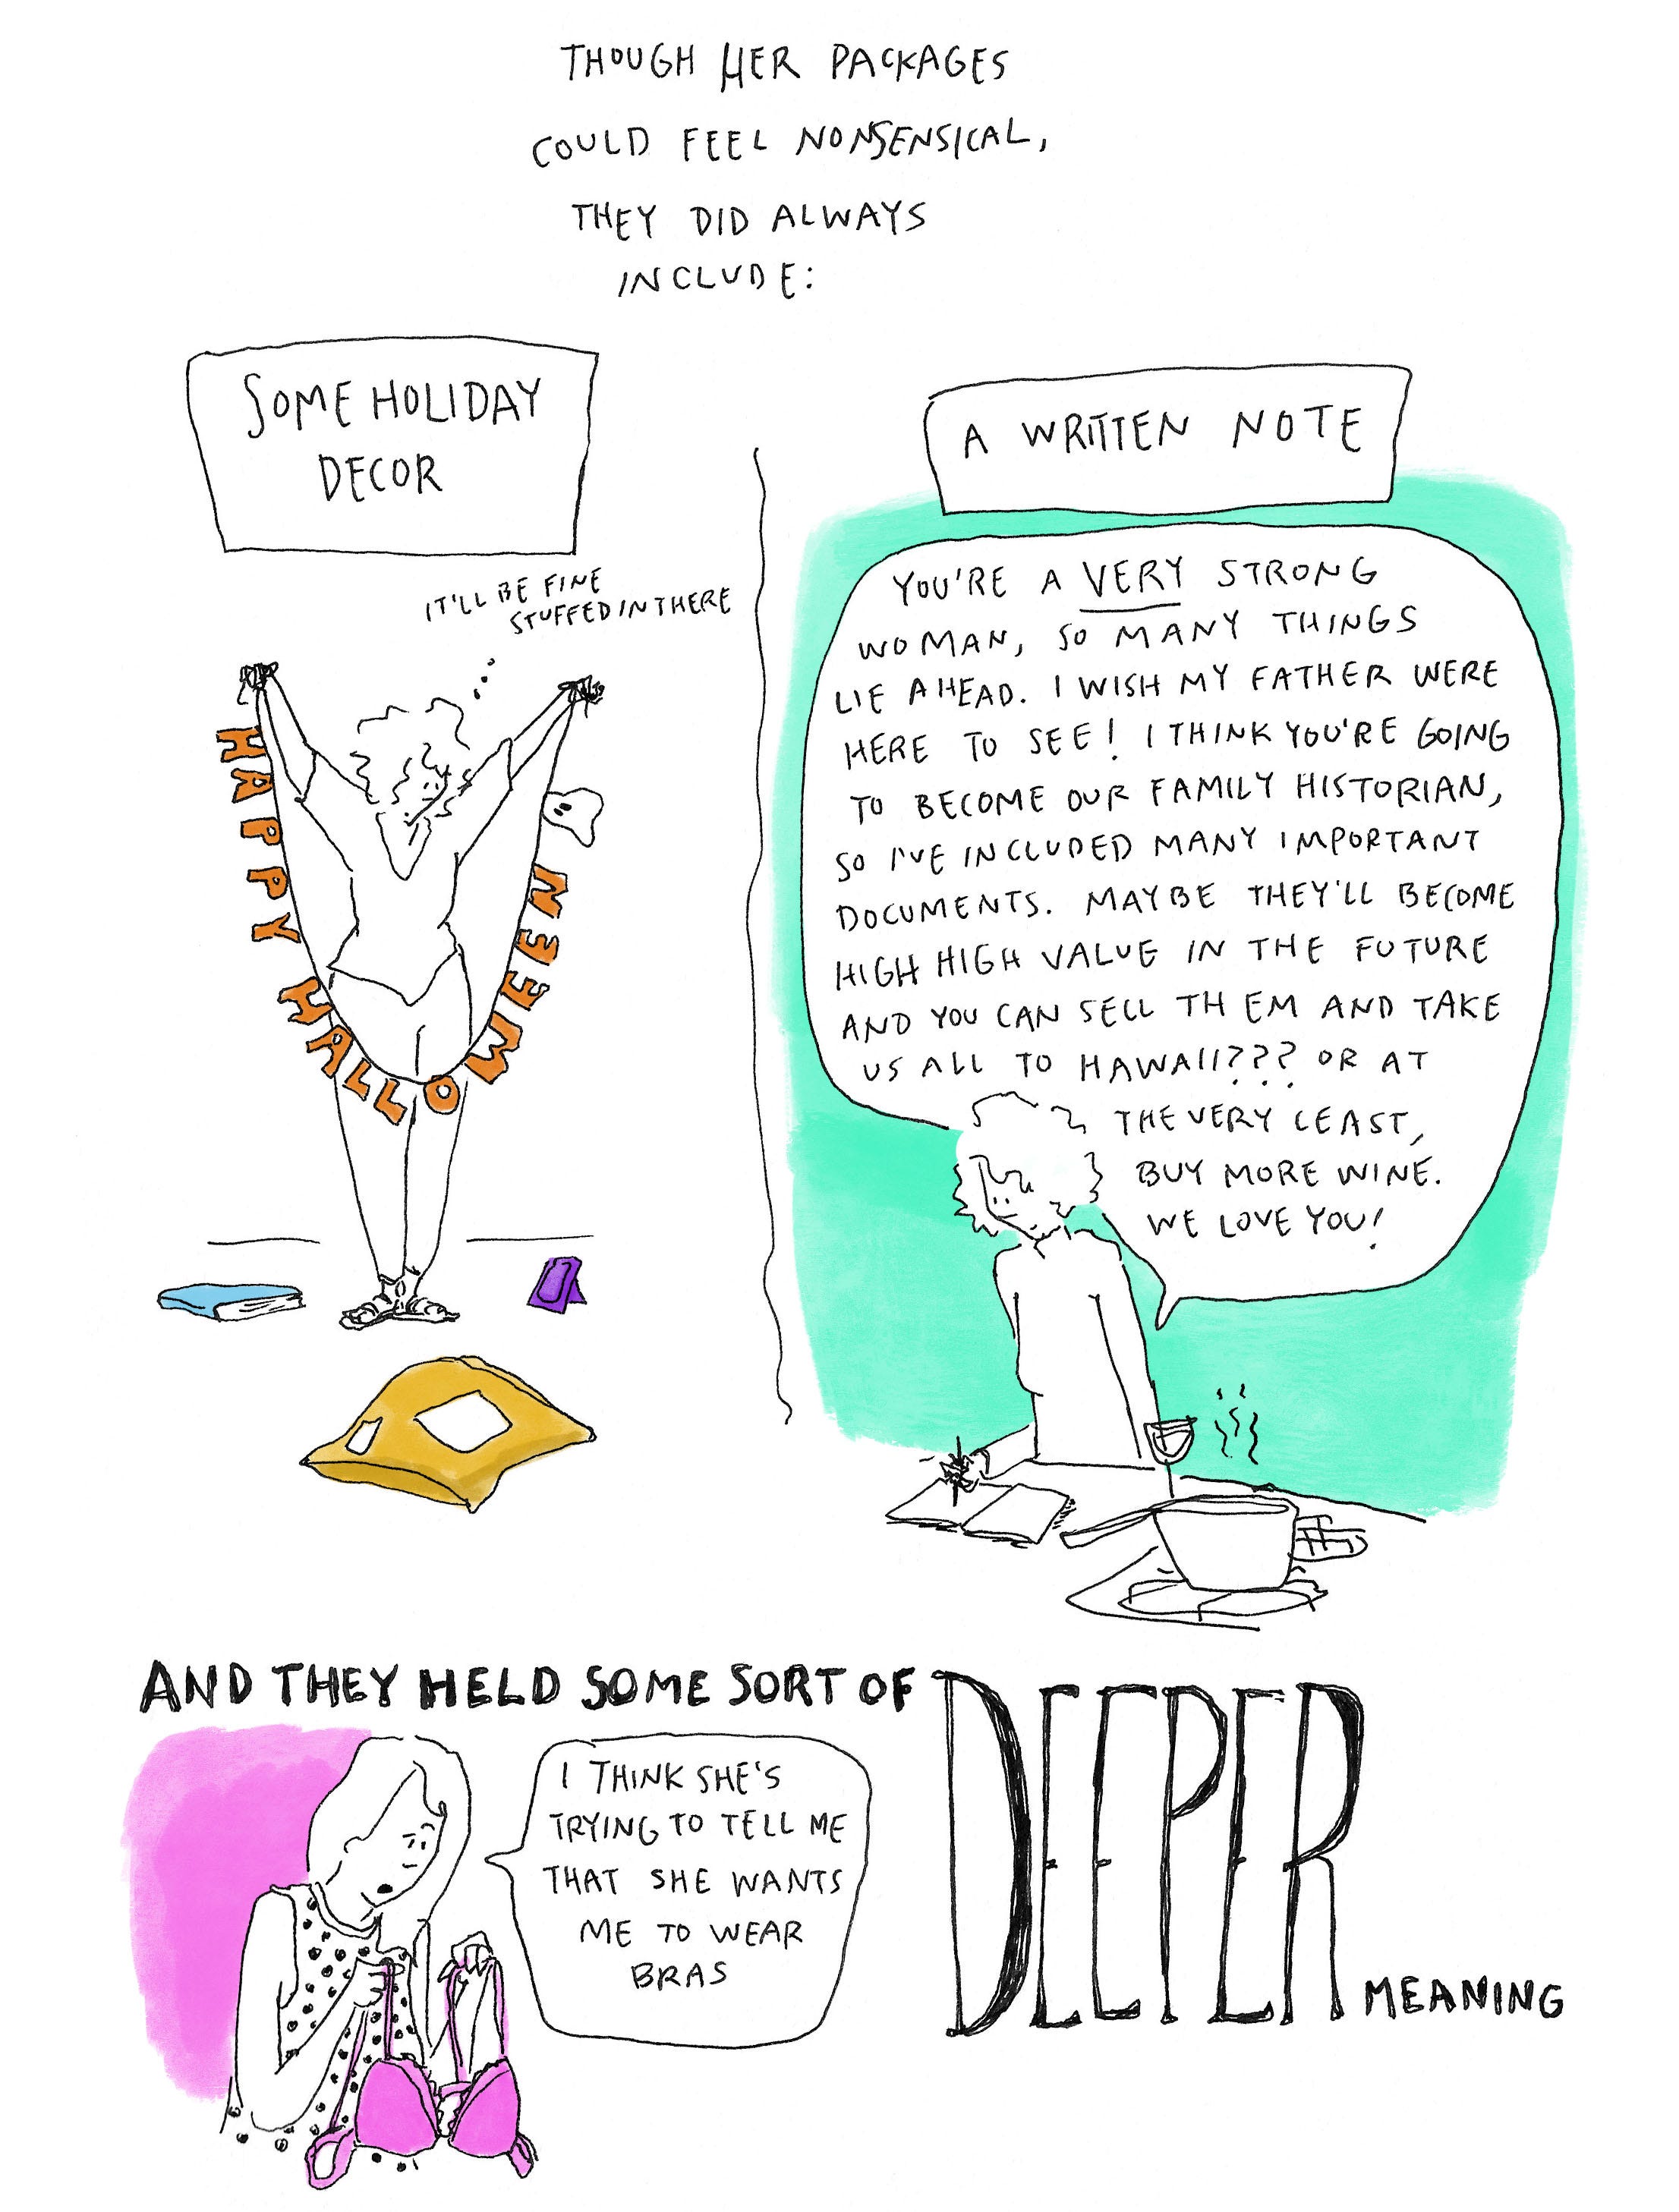 THOUGH HER PACKAGES
COULD FEEL NONSENSICAL,
THEY DID ALWAYS
INCLUDE:
SOME HOLIDAY
DECOR
IT'LL BE FINE
STUFFED IN THERE
HAPPY HALLOWEEN
A WRITTEN NOTE
YOU'RE A VERY STRONG
WOMAN, SO MANY THINGS
LIE AHEAD. I WISH MY FATHER WERE
HERE TO SEE! I THINK YOU'RE GOING
TO BECOME OUR FAMILY HISTORIAN,
SO I'VE INCLUDED MANY IMPORTANT
DOCUMENTS. MAYBE THEY'LL BECOME
HIGH HIGH VALUE IN THE FUTURE
AND YOU CAN SELL THEM AND TAKE
US ALL TO HAWAII??? OR AT
THE VERY LEAST,
BUY MORE WINE.
WE LOVE YOU!
AND THEY HELD SOME SORT OF DEEPER MEANING
I THINK SHE'S
TRYING TO TELL ME
THAT SHE WANTS
ME TO WEAR
BRAS